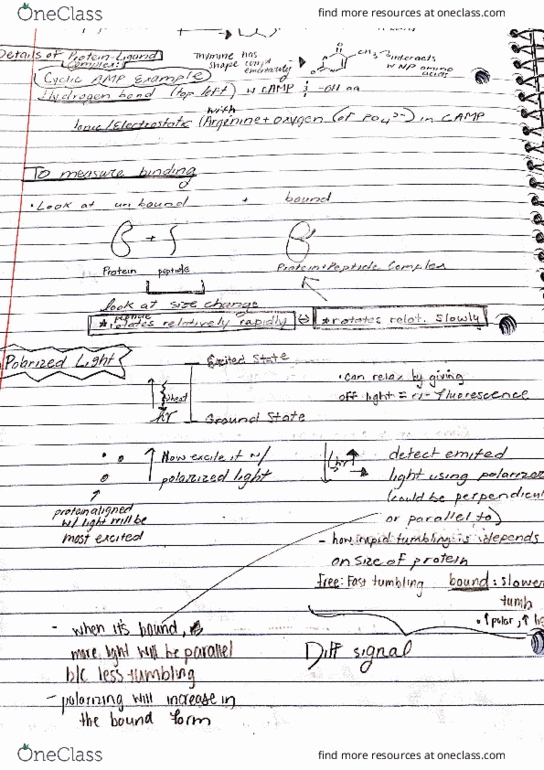 OneClass
find more resources at oneclass.com
Details of Protein-Ligand
Complex:
Thymine has
shape
CH3
interacts
w NP amino
acids
Cyclic AMP Example
Hydrogen bond (top left) w CAMP & -OH aa
with
Ionic/Electrostatic (Arginine + oxygen (of PO4 2-) in CAMP
To measure binding
• Look at unbound + bound
+
Protein peptide
Protein+Peptide Complex
look at size change
peptide
*rotates relatively rapidly ⇔ *rotates relat. slowly
Polarized Light
Excited State
heat
hr
Ground State
• can relax by giving
off light = fluorescence
Now excite it w/
polarized light
protein aligned
w/ light will be
most excited
hr
detect emited
light using polarizer
(could be perpendicul
or parallel to)
- how rapid tumbling is depends
on size of protein
free: Fast tumbling bound: slower
tumb
• ↑ polar, ↑
Diff signal
- when it's bound,
more light will be parallel
b/c less tumbling
- polarizing will increase in
the bound form
OneClass
find more resources at oneclass.com